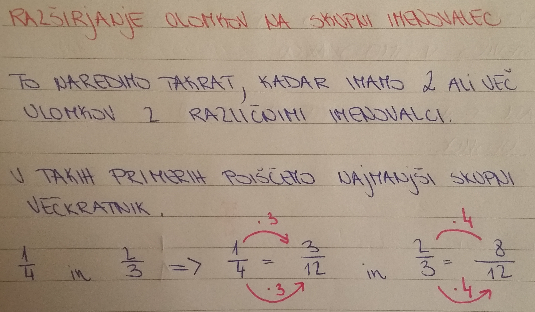 RAZŠIRJANJE ULOMKOV NA SKUPNI IMENOVALEC
TO NAREDIMO TAKRAT, KADAR IMAMO 2 ALI VEČ
ULOMKOV Z RAZLIČNIMI IMENOVALCI.
V TAKIH PRIMERIH POIŠČEMO NAJMANJŠI SKUPNI
VEČKRATNIK.
·3 ·4
1/4 in 2/3 => 1/4 = 3/12 in 2/3 = 8/12
·3 ·4